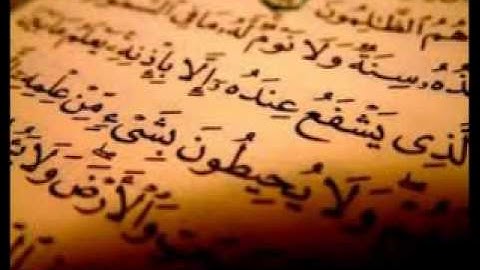 هُمُ ٱلظَّٰلِمُونَ
سِنَةٌ وَلَا نَوْمٌ لَّهُۥ مَا فِى
ٱلَّذِى يَشْفَعُ عِندَهُۥٓ إِلَّا بِإِذْنِهِۦ يَعْلَمُ مَا
وَلَا يُحِيطُونَ بِشَىْءٍ مِّنْ عِلْمِهِۦٓ
وَٱلْأَرْضَ وَلَا